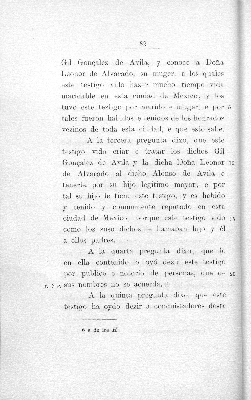 82
Gil Gonçalez de Avila, y conoce a Doña
Leonor de Alvarado, su muger, a los quales
este testigo vido hazer mucho tiempo
maridable en esta ciudad de Mexico, y los
tuvo este testigo por marido e muger, e por
tales fueron habidos e tenidos de los
vezinos de toda esta ciudad, e que esto sabe.
A la tercera pregunta dixo, que este
testigo vido criar e tratar los dichos Gil
Gonçalez de Avila y la dicha Doña Leonor
de Alvarado al dicho Alonso de Avila e
tenerle por su hijo legitimo mayor, e por
tal su hijo le tuvo este testigo, y es habido
y tenido y comunmente reputado en esta
ciudad de Mexico, porque este testigo vido
como los suso dichos le llamaban hijo y él
a ellos padres.
A la quarta pregunta dixo, que lo
en ella contenido lo oyó dezir este testigo
por publico e notorio de personas, que de
sus nombres no se acuerda.
A la quinta pregunta dixo, que este
testigo ha oydo dezir a conquistadores desta